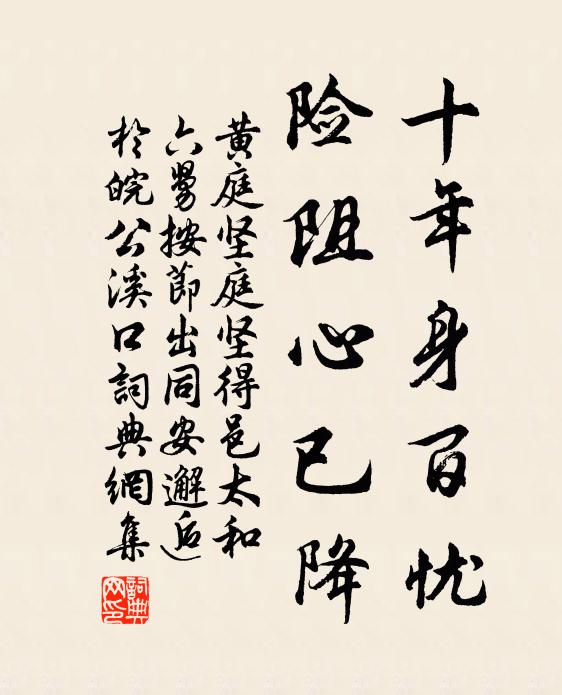 十年身百忧
险阻心已降
黄庭坚庭坚得邑太和
六舅按节出同安邂逅
於皖公溪口詞典網集
詞典
网印